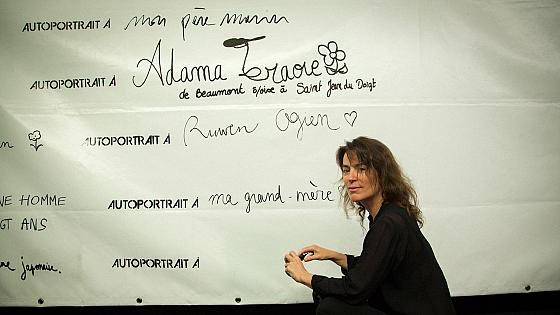 AUTOPORTRAIT À mon père marin
AUTOPORTRAIT À Adama Traore
de Beaumont s/oise à Saint Jean du Doigt
AUTOPORTRAIT À Ruwen Ogien
AUTOPORTRAIT À ma grand-mère
HOMME
ANS
AUTOPORTRAIT À
japonaise.